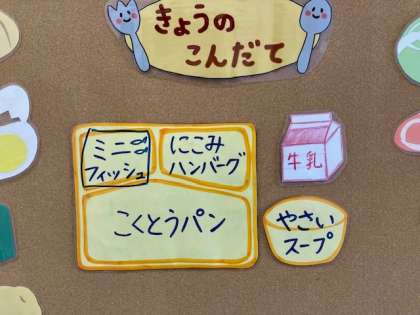 きょうの
こんだて
ミニ
フィッシュ
にこみ
ハンバーグ
牛乳
こくとうパン
やさい
スープ